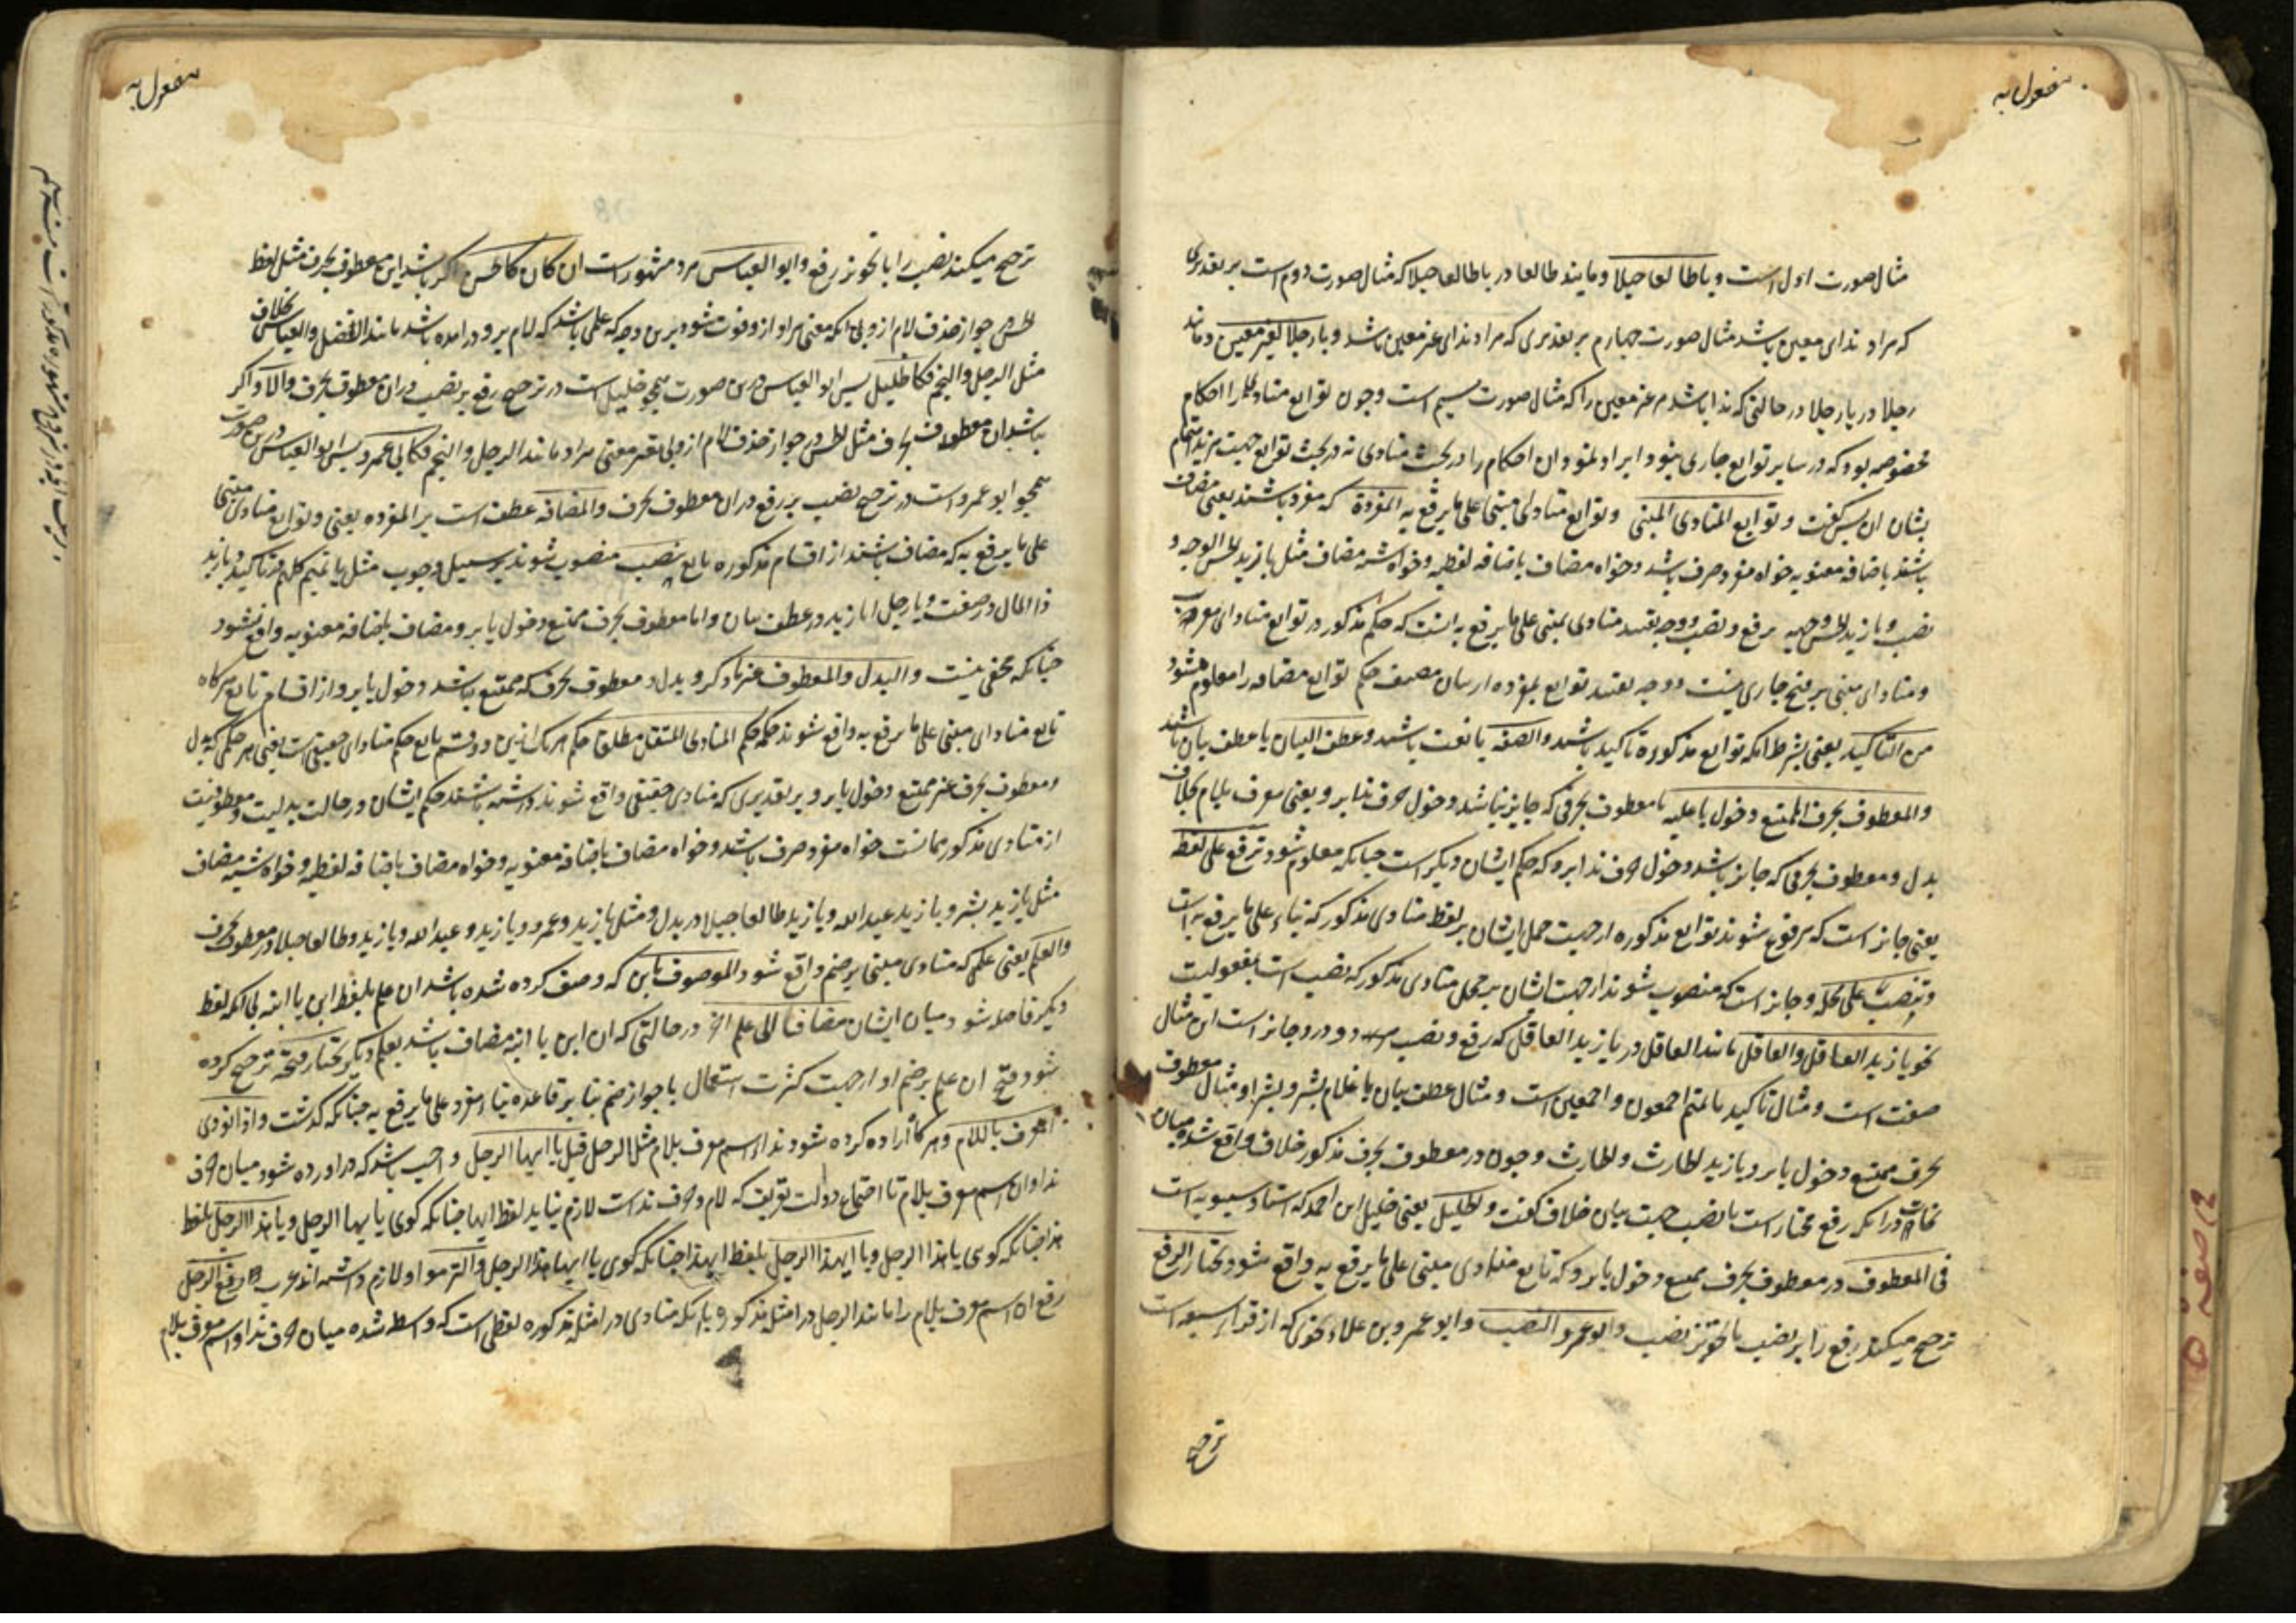 مفعول به
مثال صورت اول است و یا طالعا جبلا و مانند طالعا در یا طالعا جبلا که مثال صورت دوم است بر تقدیری
که مراد ندای معین باشد مثال صورت چهارم بر تقدیری که مراد ندای غیر معین باشد و یا رجلا لغیر معین و مانند
رجلا در یا رجلا در حالتی که ندا باشد مر غیر معین را که مثال صورت سیم است و چون توابع منادی را احکام
مخصوصه بود که در سایر توابع جاری نبود ایراد نمود ان احکام را در بحث منادی نه در بحث توابع جهت مزید اهتمام
بشان ان پس گفت و توابع المنادی المبنی و توابع منادی مبنی علی ما یرفع به المفردة که مفرد باشند یعنی مضاف
باشند باضافه معنویه خواه مفرد صرف باشد و خواه مضاف باضافه لفظیه و خواه شبه مضاف مثل یا زید الحسن الوجه و
نصب و یا زید الحسن وجهه برفع و نصب و وجه تقیید منادی بمبنی علی ما یرفع به انست که حکم مذکور در توابع منادای معرب
و منادای مبنی بر فتح جاری نیست و وجه تقیید توابع بمفرده از بیان مصنف حکم توابع مضافه را معلوم میشود
من التاکید یعنی بشرط انکه توابع مذکوره تاکید باشد و الصفة یا نعت باشد و عطف البیان یا عطف بیان باشد
والمعطوف بحرف الممتنع دخول یا علیه یا معطوف بحرفی که جایز نباشد دخول حرف ندا برو یعنی معرف بلام بخلاف
بدل و معطوف بحرفی که جایز باشد دخول حرف ندا برو که حکم ایشان دیگر است چنانکه معلوم شود ترفع علی لفظه
یعنی جایز است که مرفوع شوند توابع مذکوره از جهت حمل ایشان بر لفظ منادی مذکور که بناء علی ما یرفع به است
و تنصب علی محله و جایز است که منصوب شوند از جهت ایشان بر محل منادی مذکور که نصب است بمفعولیت
نحو یا زید العاقل والعاقل مانند العاقل در یا زید العاقل که رفع و نصب هر دو درو جایز است این مثال
صفت است و مثال تاکید یا تمیم اجمعون و اجمعین است و مثال عطف بیان یا غلام بشر و بشرا و مثال معطوف
بحرف ممتنع دخول یا برو یا زید الحارث و الحارث و چون در معطوف بحرف مذکور خلاف واقع شده میان
نحات در انکه رفع مختار است یا نصب جهت بیان خلاف گفت و الخلیل یعنی خلیل ابن احمد که استاد سیبویه است
فی المعطوف در معطوف بحرف ممتنع دخول یا برو که تابع منادی مبنی علی ما یرفع به واقع شود یختار الرفع
ترجیح میکند رفع را بر نصب با تجویز نصب و ابو عمرو النصب و ابو عمرو بن علاء نحوی که از قراء سبعه است
ترجیح
مفعول به
ترجیح میکند نصب را با تجویز رفع و ابو العباس مرد مشهور است ان کان کالحسن اگر باشد این معطوف بحرف مثل لفظ
الحسن جواز حذف لام ازو بی انکه معنی مراد ازو فوت شود برین وجه که علمی باشد که لام برو در امده باشد مانند الفضل و العباس بخلاف
مثل الرجل والنجم فکالخلیل پس ابو العباس درین صورت همچو خلیل است در ترجیح رفع بر نصب در ان معطوف بحرف والا و اگر
نباشد ان معطوف بحرف مثل الحسن در جواز حذف لام ازو بی تغیر معنی مراد مانند الرجل و النجم فکابی عمرو پس ابو العباس درین صورت
همچو ابو عمرو است در ترجیح نصب بر رفع در ان معطوف بحرف والمضافه عطف است بر المفرده یعنی و توابع منادی مبنی
علی ما یرفع به که مضاف باشند از اقسام مذکوره تابع تنصب منصوب شوند بر سبیل وجوب مثل یا تمیم کلهم در تاکید و یا زید
ذا المال در صفت و یا رجل ابا زید در عطف بیان و اما معطوف بحرف ممتنع دخول یا برو مضاف باضافه معنویه واقع نشود
چنانکه مخفی نیست والبدل والمعطوف غیر ما ذکر و بدل و معطوف بحرف که ممتنع باشد دخول یا برو از اقسام تابع هرگاه
تابع منادای مبنی علی ما یرفع به واقع شوند حکمه حکم المنادی المستقل مطلقا حکم هر یک ازین دو قسم تابع حکم منادای حقیقی است یعنی هر حکمی که بدل
و معطوف بحرف غیر ممتنع دخول یا برو بر تقدیری که منادی حقیقی واقع شوند داشته باشند حکم ایشان در حالت بدلیت و معطوفیت
از منادی مذکور همانست خواه مفرد صرف باشد و خواه مضاف باضافه معنویه و خواه مضاف باضافه لفظیه و خواه شبه مضاف
مثل یا زید بشر و یا زید عبد الله و یا زید طالعا جبلا در بدل و مثل یا زید و عمرو و یا زید و عبد الله و یا زید و طالعا جبلا در معطوف بحرف
والعلم یعنی علمی که منادی مبنی بر ضم واقع شود الموصوف بابن که وصف کرده شده باشد ان علم بلفظ ابن یا ابنه بی انکه لفظ
دیگر فاصله شود میان ایشان مضافا الی علم اخر در حالتی که ان ابن یا ابنه مضاف باشد بعلم دیگر یختار فتحه ترجیح کرده
شود فتح ان علم بر ضم او از جهت کثرت استعمال با جواز ضم بنا بر قاعده بناء مفرد علی ما یرفع به چنانکه گذشت و اذا نودی
المعرف باللام و هرگاه اراده کرده شود نداء اسم معرف بلام مثل الرجل قیل یا ایها الرجل واجب باشد که در اورده شود میان حرف
ندا و ان اسم معرف بلام تا اجتماع دو الت تعریف که لام و حرف نداست لازم نیاید لفظ ایها چنانکه گوی یا ایها الرجل و یا هذا الرجل بلفظ
هذا چنانکه گوی یا هذا الرجل و یا ایهذا الرجل بلفظ ایهذا چنانکه گوی یا ایهذا الرجل والتزموا و لازم داشته اند عرب رفع الرجل
رفع ان اسم معرف بلام را مانند الرجل در امثله مذکوره با انکه منادی در امثله مذکوره لفظی است که واسطه شده میان حرف ندا و اسم معرف بلام